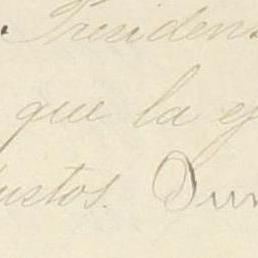 Presiden
que la ej
ustos. Dur